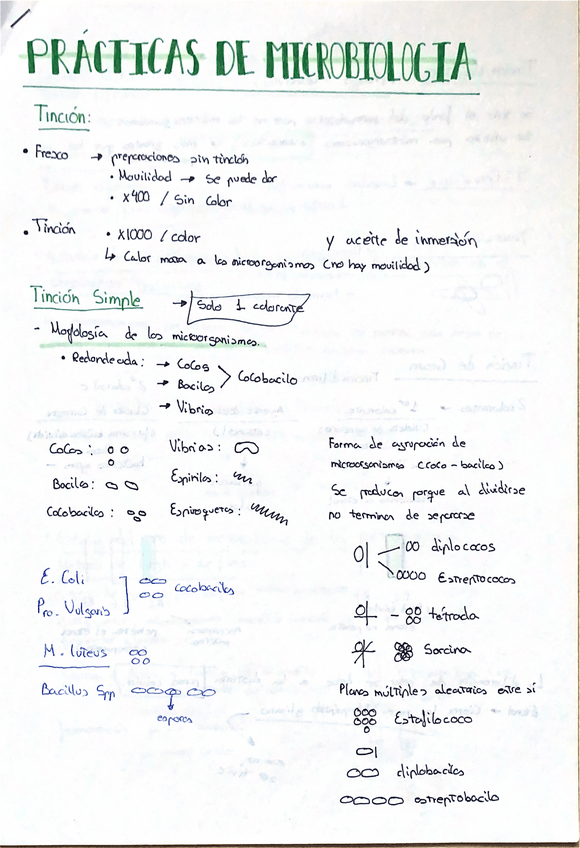 PRÁCTICAS DE MICROBIOLOGIA
Tinción:
• Fresco → preparaciones sin tinción
• Movilidad → Se puede dar
• x400 / Sin Color
• Tinción • X1000 / color y aceite de inmersión
↳ Calor mata a los microorganismos (no hay movilidad)
Tinción Simple → Solo 1 colorante
- Morfología de los microorganismos.
• Redondeada: → Cocos
→ Bacilos > Cocobacilo
→ Vibrio
Cocos:
Bacilos:
Cocobacilos:
Vibrias:
Espirilos:
Espiroquetas:
Forma de agrupación de
microorganismos (coco - bacilos)
Se producen porque al dividirse
no termina de separarse
diplococos
Estreptococos
- tétrada
Sarcina
Planos múltiples aleatorios entre sí
Estafilococo
diplobacilos
estreptobacilo
E. Coli
Pro. Vulgaris
cocobacilos
M. luteus
Bacillus Spp
esporas